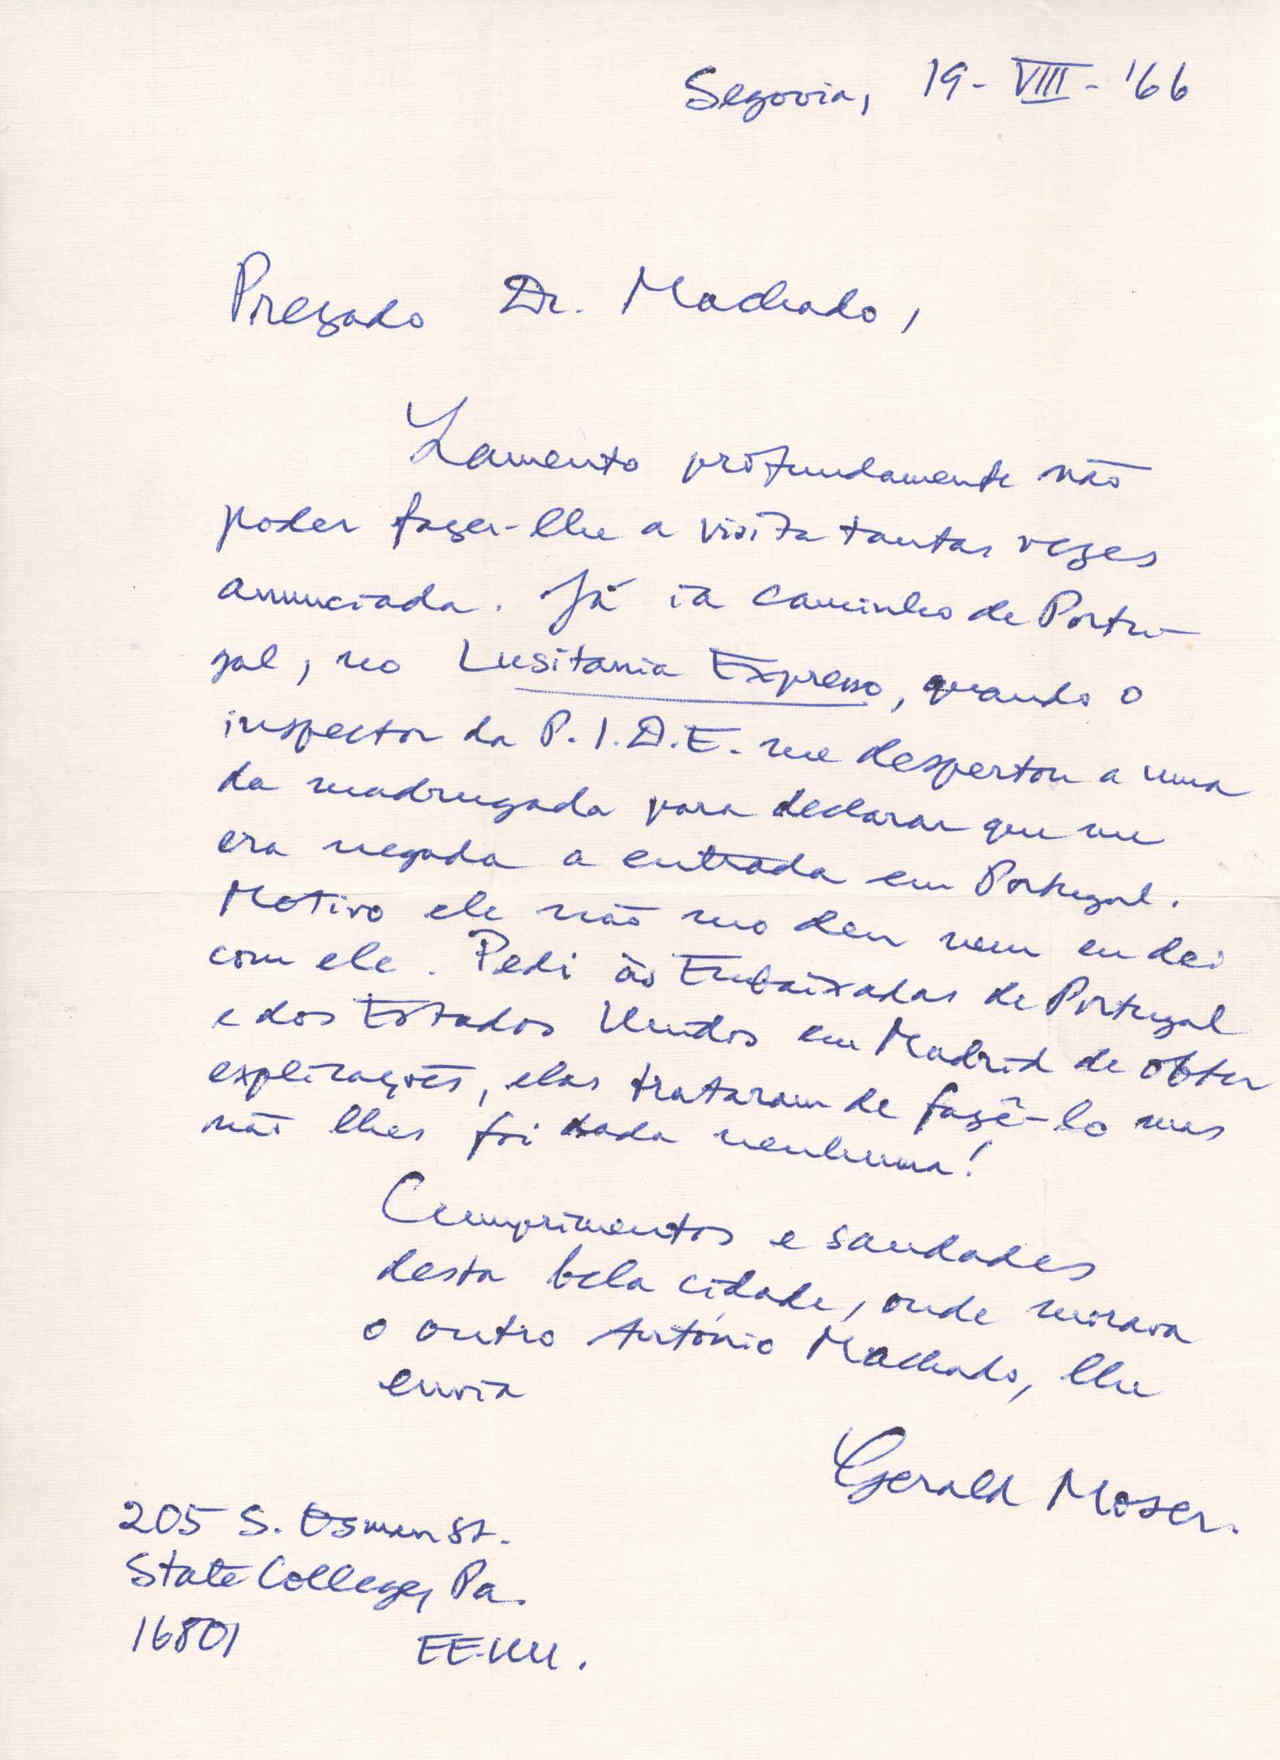 Segovia, 19-VIII-'66
Prezado Dr. Machado,
Lamento profundamente não
poder fazer-lhe a visita tantas vezes
anunciada. Já ia caminho de Portu-
gal, no Lusitania Expresso, quando o
inspector da P.I.D.E. me despertou a uma
da madrugada para declarar que me
era negada a entrada em Portugal.
Motivo ele não mo deu nem eu dei
com ele. Pedi às Embaixadas de Portugal
e dos Estados Unidos em Madrid de obter
explicações, elas trataram de fazê-lo mas
não lhes foi dada nenhuma!
Cumprimentos e saudades
desta bela cidade, onde morava
o outro António Machado, lhe
envia
Gerald Moser.
205 S. Osman St.
State College, Pa.
16801 EE.UU.